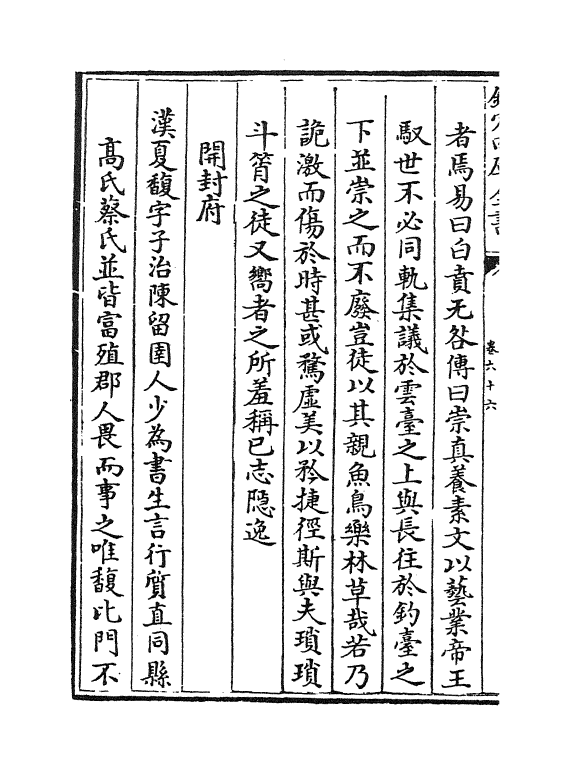 欽定四庫全書
卷六十六
者焉易曰白賁无咎傳曰崇真養素文以藝業帝王
馭世不必同軌集議於雲臺之上與長往於釣臺之
下並崇之而不廢豈徒以其親魚鳥樂林草哉若乃
詭激而傷於時甚或騖虛美以矜捷徑斯與夫瑣瑣
斗筲之徒又嚮者之所羞稱已志隐逸
開封府
漢夏馥字子治陳留圉人少為書生言行質直同縣
高氏蔡氏並皆富殖郡人畏而事之唯馥比門不